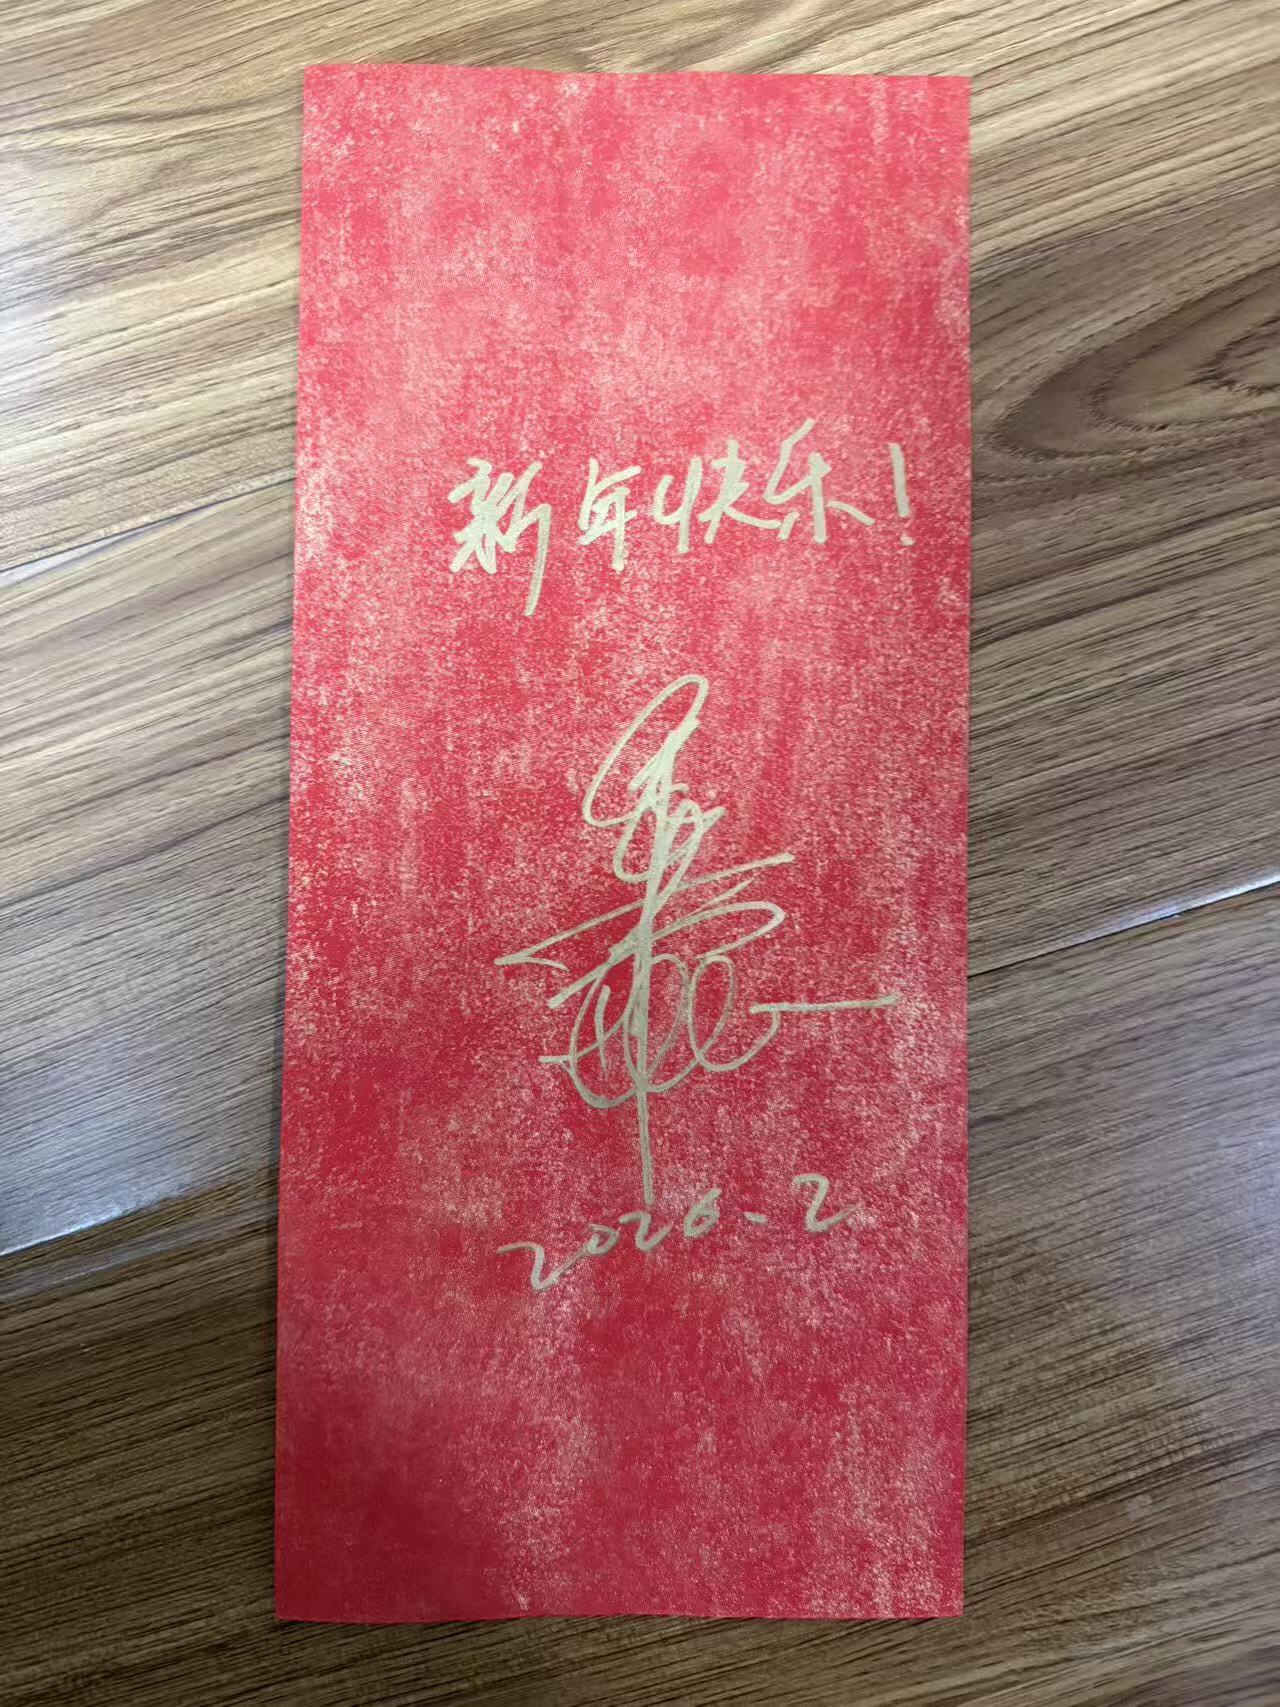 新年快乐！
2026.2